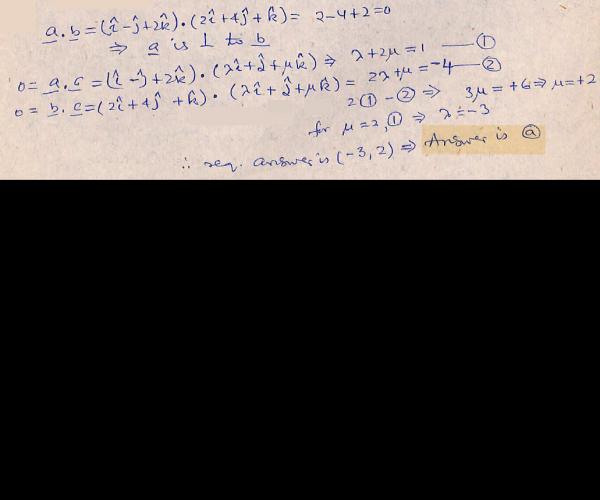 a.b=(î-ĵ+2k̂)·(2î+4ĵ+k̂)= 2-4+2=0
⇒ a is ⊥ to b
0= a.c=(î-ĵ+2k̂)·(λî+ĵ+μk̂)⇒ λ+2μ=1 —①
0= b.c=(2î+4ĵ+k̂)·(λî+ĵ+μk̂)= 2λ+μ=-4—②
2①-②⇒ 3μ=+6⇒μ=+2
for μ=2,①⇒ λ=-3
∴ req. answer is (-3,2)⇒ Answer is ⓐ